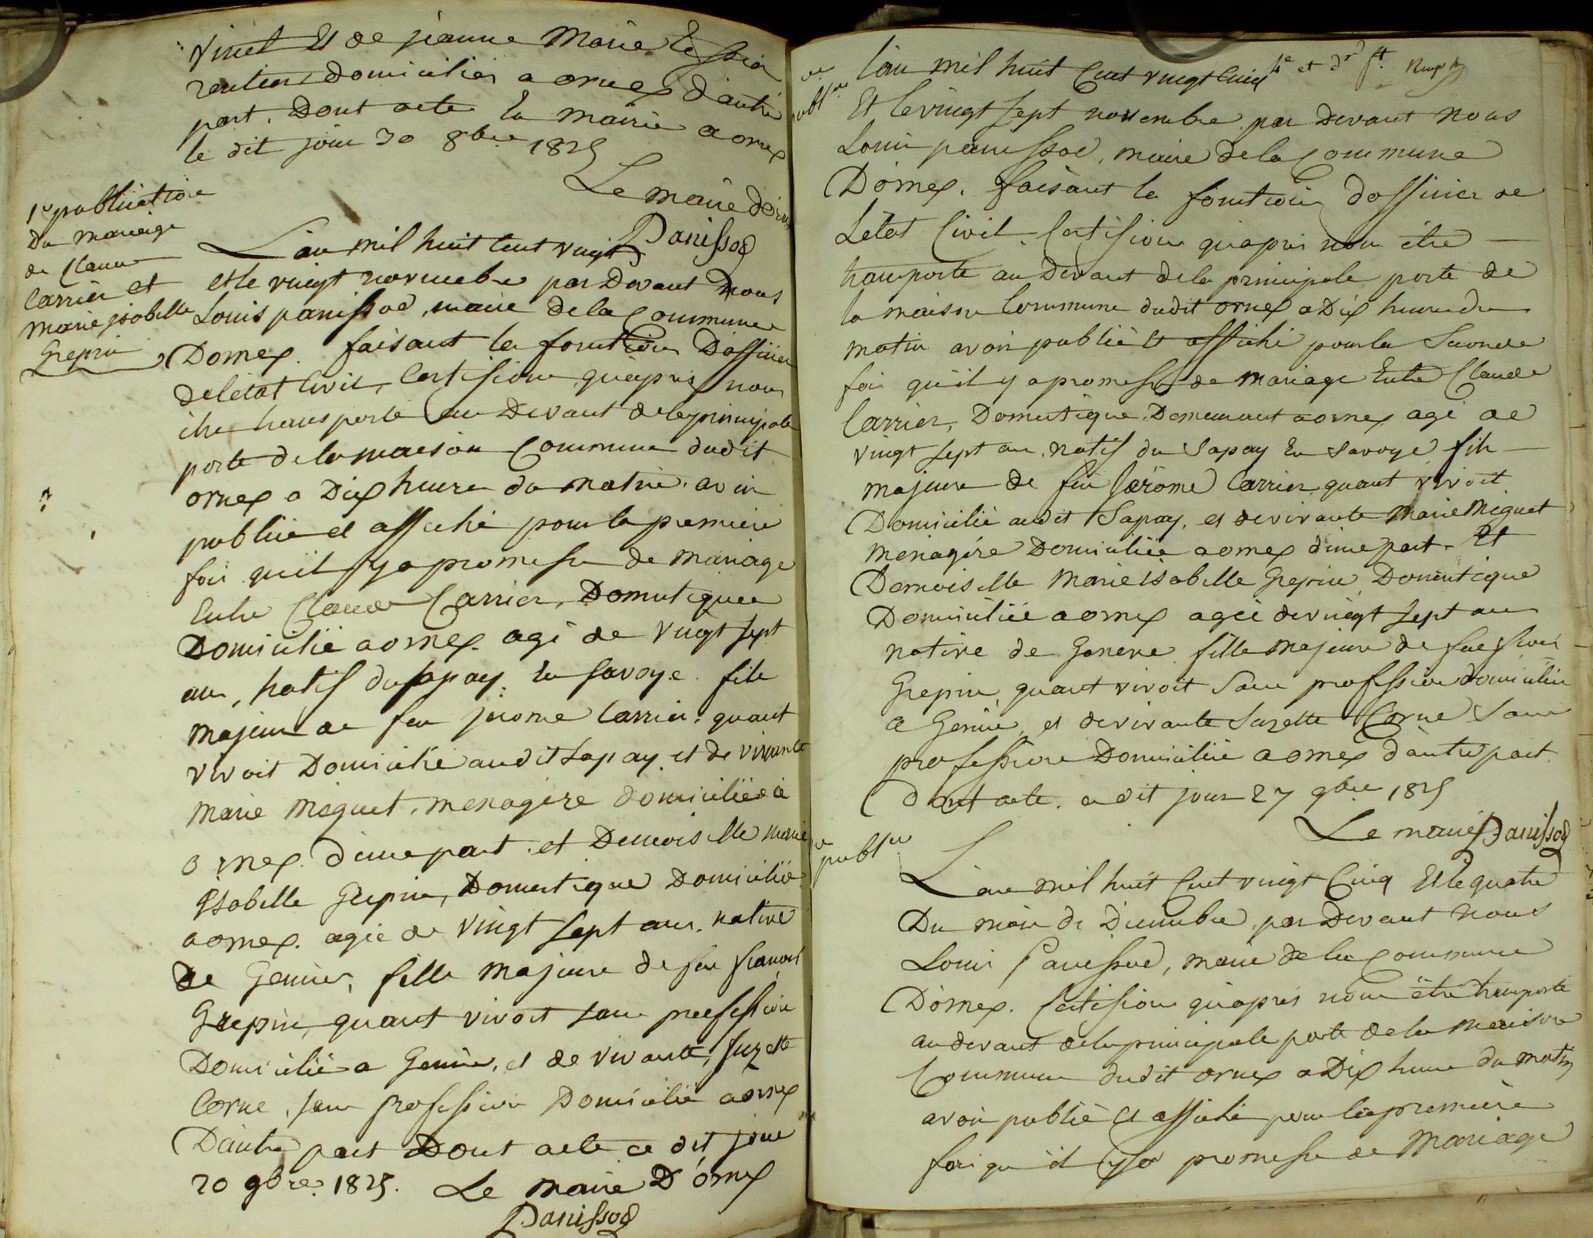 vinet Et de jeanne Marie
rentiers Domiciliés a ornex d'autre
part. Dont acte En Mairie a ornex
le dit jour 30 8bre 1825
Le maire d'ornex
Panissod
1e publication
du mariage
de Claude
Carrier et
Marie isabelle
Grepin
L'an mil huit cent vingt 5
et le vingt novembre par Devant Nous
Louis panissod, maire de la Commune
Dornex. faisant la fonction D'officier
de l'etat Civil, Certifions qu'apres nous
être transporté au Devant de la principale
porte de la maison Commune dudit
ornex a Dix heure du matin. avoir
publié et affiché pour la premiere
fois qu'il y a promesse de mariage
Entre Claude Carrier, Domestique
Domicilié a ornex. agé de vingt sept
ans, natif du sapay En Savoye. fils
majeur de feu jerome Carrier. quant
vivoit Domicilié audit Sapay. et de vivante
Marie Meguet. menagère domiciliée à
ornex d'une part. et Demoiselle marie
isabelle Grepin, Domestique Domiciliée
a ornex. agée de vingt sept ans. native
de Geneve, fille majeure de feu francois
Grepin, quant vivoit sans profession
Domicilié a Geneve, et de vivante, suzette
Corne, sans profession Domiciliée a ornex
D'autre part Dont acte ce dit jour
20 9bre 1825. Le maire D'ornex
Panissod
publon
L'an mil huit Cent vingt Cinq
Et le vingt sept novembre par Devant nous
Louis panissod, maire de la Commune
D'ornex. faisant la fonction d'officier de
L'etat Civil. Certifions qu'apres nous être
transporté au Devant de la principale porte de
la maison Commune dudit ornex a Dix heure du
matin avoir publié et affiché pour la Seconde
fois qu'il y a promesse de mariage Entre Claude
Carrier, Domestique Demeurant a ornex agé de
vingt sept ans. natif du Sapay En Savoye fils
majeure de feu Jérome Carrier, quant vivoit
Domicilié audit Sapay, et de vivante Marie Meguet
menagère Domiciliée a ornex d'une part. Et
Demoiselle Marie isabelle Grepin, Domestique
Domiciliée a ornex agée de vingt sept ans
native de Geneve. fille majeure de feu
Grepin quant vivoit Sans profession domicilié
a Geneve, et de vivante Suzette Corne Sans
profession Domiciliée a ornex d'autre part.
Dont acte. a dit jour 27 9bre 1825
Le maire Panissod
publon
L'an mil huit Cent vingt Cinq Et le quatre
Du mois de Decembre, par Devant nous
Louis Panissod, maire de la Commune
D'ornex. Certifions qu'apres nous être transporté
au devant de la principale porte de la Maison
Commune dudit ornex a Dix heure du matin
avoir publié et affiché pour la premiere
fois qu'il y a promesse de Mariage